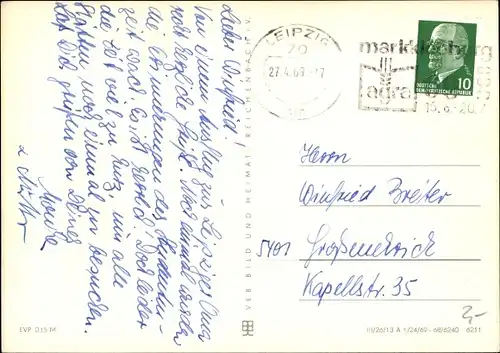 Lieber Winfried!
Von einem Ausflug zur Leipziger Oper
recht herzliche Grüße. Noch einmal werden
die Erinnerungen der
zeit wach. Es ist herrlich! Doch leider
die Zeit viel zu kurz, um alle
Stätten noch einmal zu besuchen.
Laß Dich grüßen von Deiner
LEIPZIG
70
27.4.69
markkleeberg
agra 69
15.6.-20.7
DEUTSCHE
DEMOKRATISCHE REPUBLIK
10
VEB BILD UND HEIMAT REICHENBACH i. V.
Herrn
Winfried Breiter
5401 Großenehrich
Kapellstr. 35
2,-
EVP 0,15 M
III/26/13 A 1/24/69 - 68/6240 6211